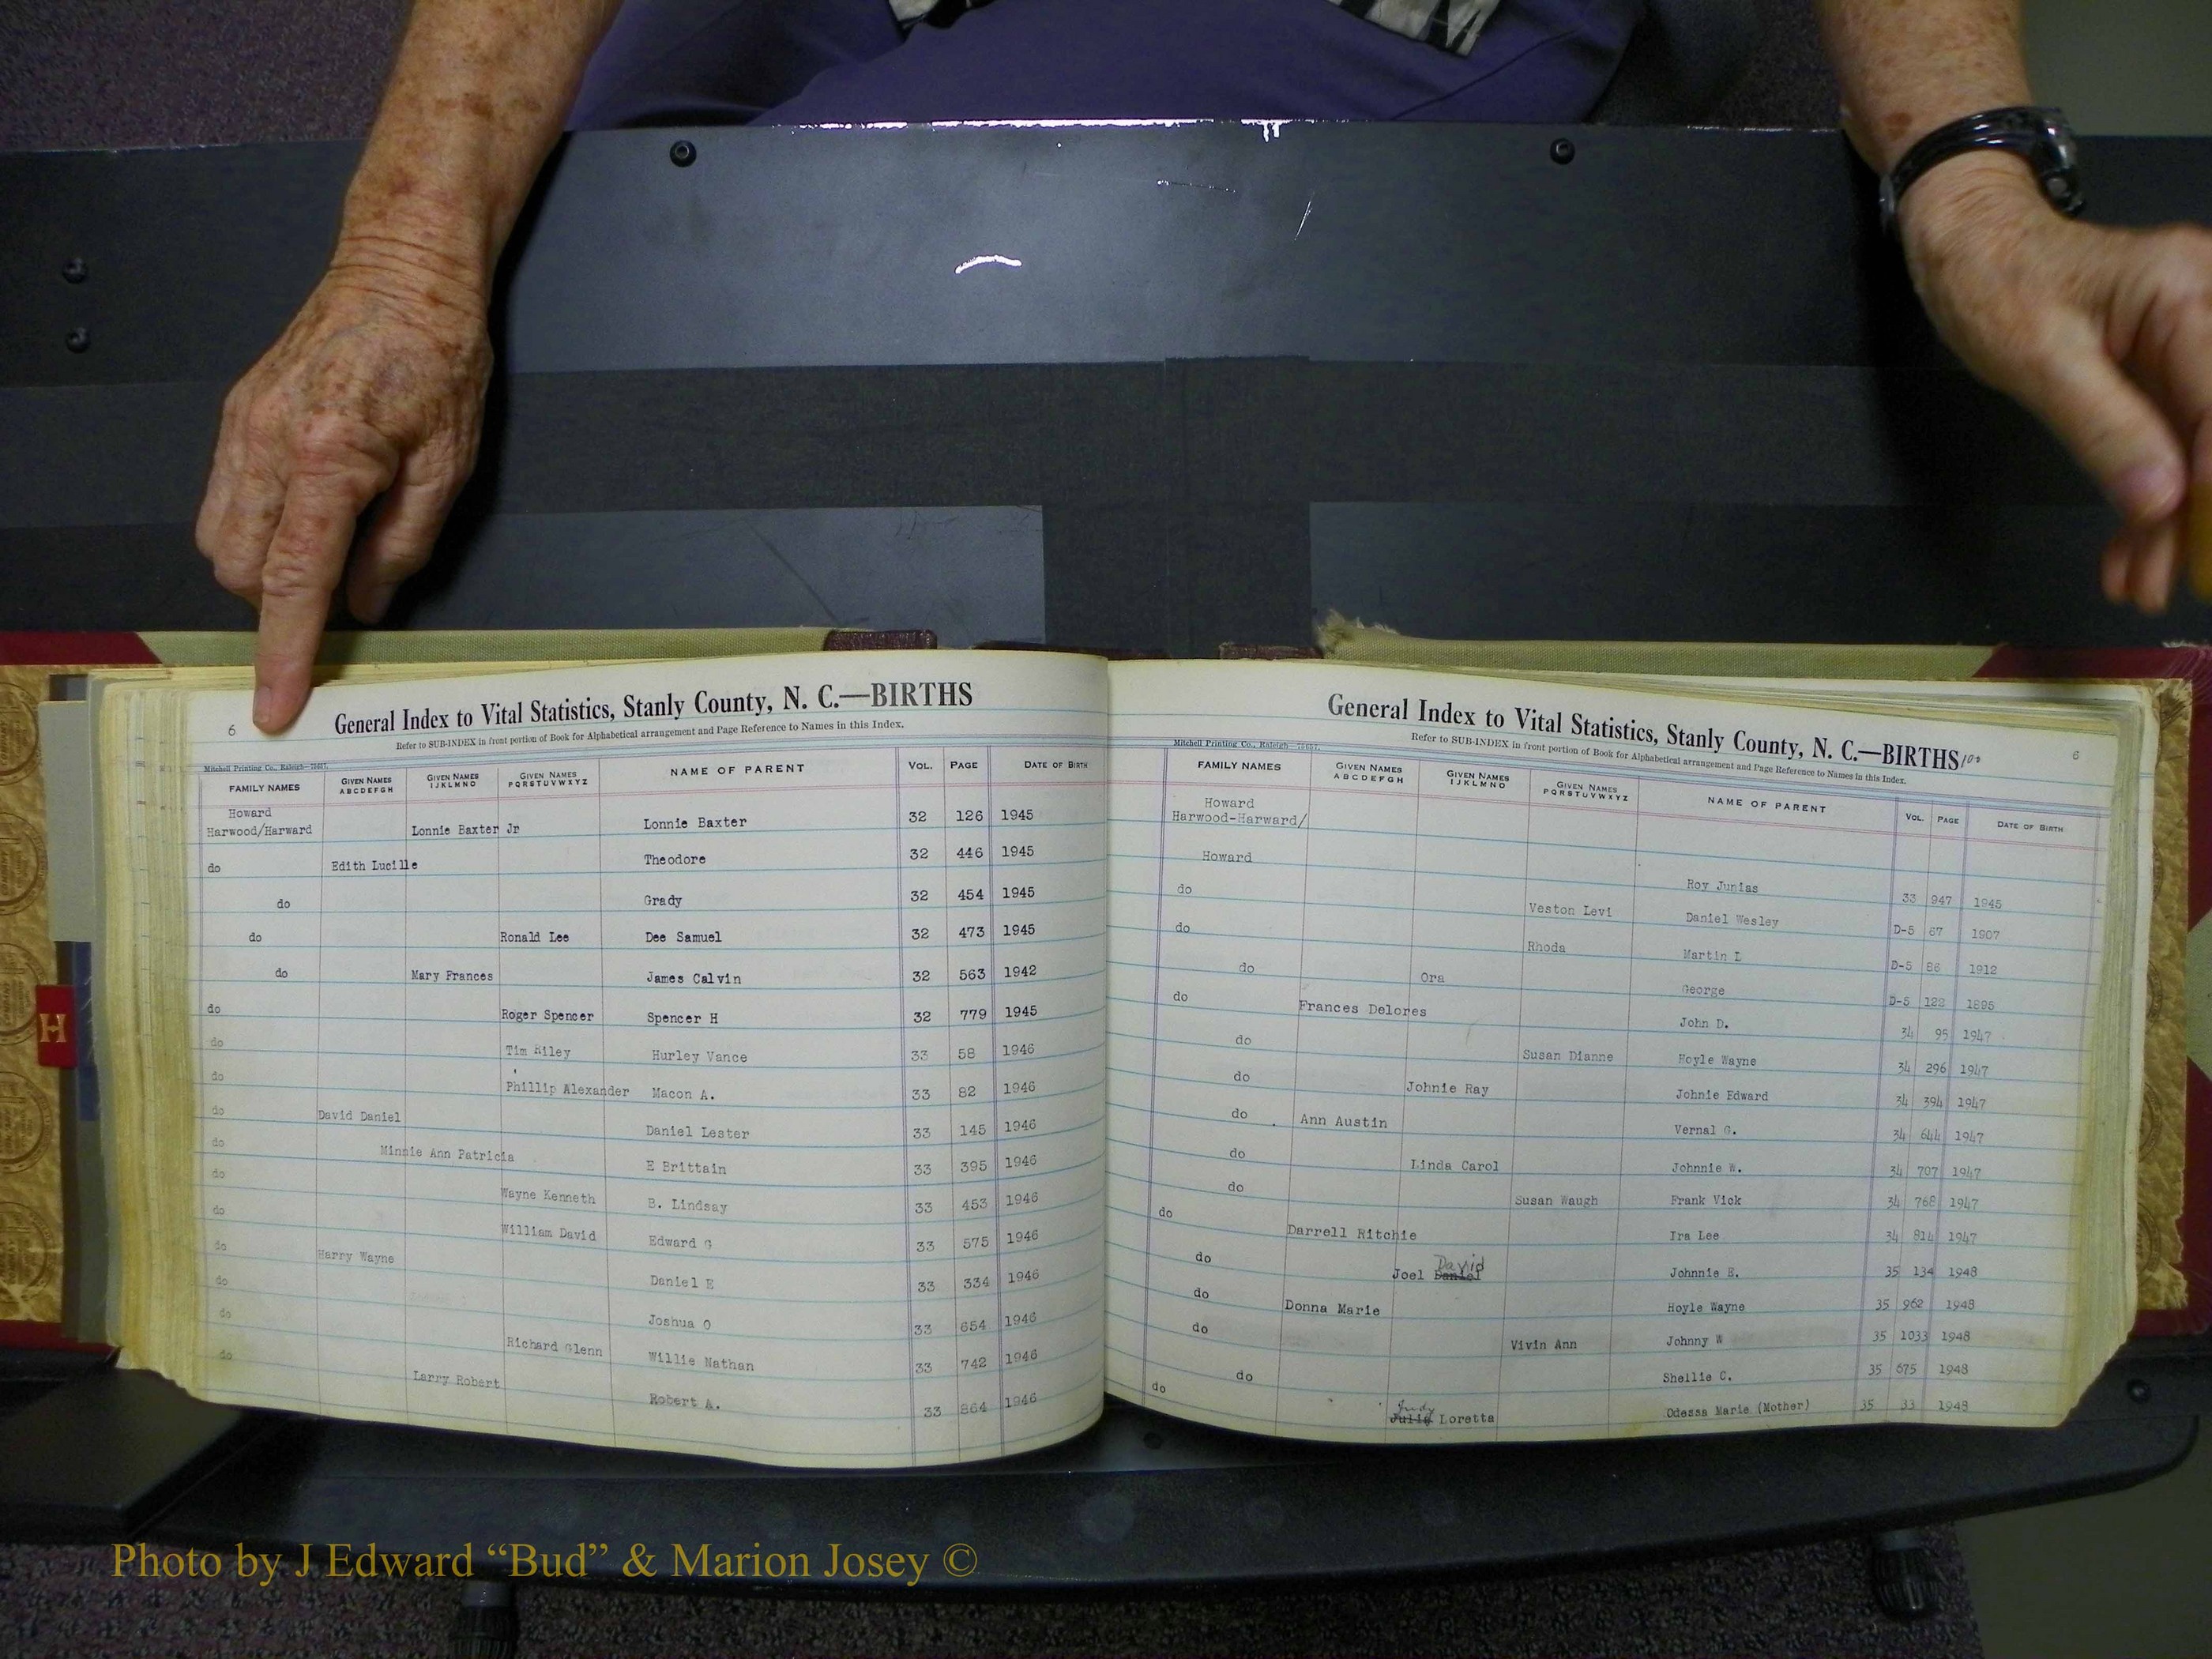 6
General Index to Vital Statistics, Stanly County, N. C.—BIRTHS
Refer to SUB-INDEX in front portion of Book for Alphabetical arrangement and Page Reference to Names in this Index.
Mitchell Printing Co., Raleigh
FAMILY NAMES GIVEN NAMES ABCDEFGH GIVEN NAMES IJKLMNO GIVEN NAMES PQRSTUVWXYZ NAME OF PARENT VOL. PAGE DATE OF BIRTH
Howard
Harwood/Harward Lonnie Baxter Jr Lonnie Baxter 32 126 1945
do Edith Lucille Theodore 32 446 1945
do Grady 32 454 1945
do Ronald Lee Dee Samuel 32 473 1945
do Mary Frances James Calvin 32 563 1942
do Roger Spencer Spencer H 32 779 1945
do Tim Riley Hurley Vance 33 58 1946
do Phillip Alexander Macon A. 33 82 1946
do David Daniel Daniel Lester 33 145 1946
do Minnie Ann Patricia E Brittain 33 395 1946
do Wayne Kenneth B. Lindsay 33 453 1946
do William David Edward G 33 575 1946
do Harry Wayne Daniel E 33 334 1946
do Joshua O 33 654 1946
do Richard Glenn Willie Nathan 33 742 1946
do Larry Robert Robert A. 33 864 1946
General Index to Vital Statistics, Stanly County, N. C.—BIRTHS
6
Refer to SUB-INDEX in front portion of Book for Alphabetical arrangement and Page Reference to Names in this Index.
Mitchell Printing Co., Raleigh
FAMILY NAMES GIVEN NAMES ABCDEFGH GIVEN NAMES IJKLMNO GIVEN NAMES PQRSTUVWXYZ NAME OF PARENT VOL. PAGE DATE OF BIRTH
Howard
Harwood-Harward/
Howard Roy Junias 33 947 1945
do Veston Levi Daniel Wesley D-5 67 1907
do Rhoda Martin L D-5 86 1912
do Ora George D-5 122 1895
do Frances Delores John D. 34 95 1947
do Susan Dianne Hoyle Wayne 34 296 1947
do Johnie Ray Johnie Edward 34 394 1947
do Ann Austin Vernal G. 34 644 1947
do Linda Carol Johnnie W. 34 707 1947
do Susan Waugh Frank Vick 34 768 1947
do Darrell Ritchie Ira Lee 34 814 1947
do Joel Daniel David Johnnie E. 35 134 1948
do Donna Marie Hoyle Wayne 35 962 1948
do Vivin Ann Johnny W 35 1033 1948
do Shellie C. 35 675 1948
do Julie Judy Loretta Odessa Marie (Mother) 35 33 1948
H
Photo by J Edward “Bud” & Marion Josey ©